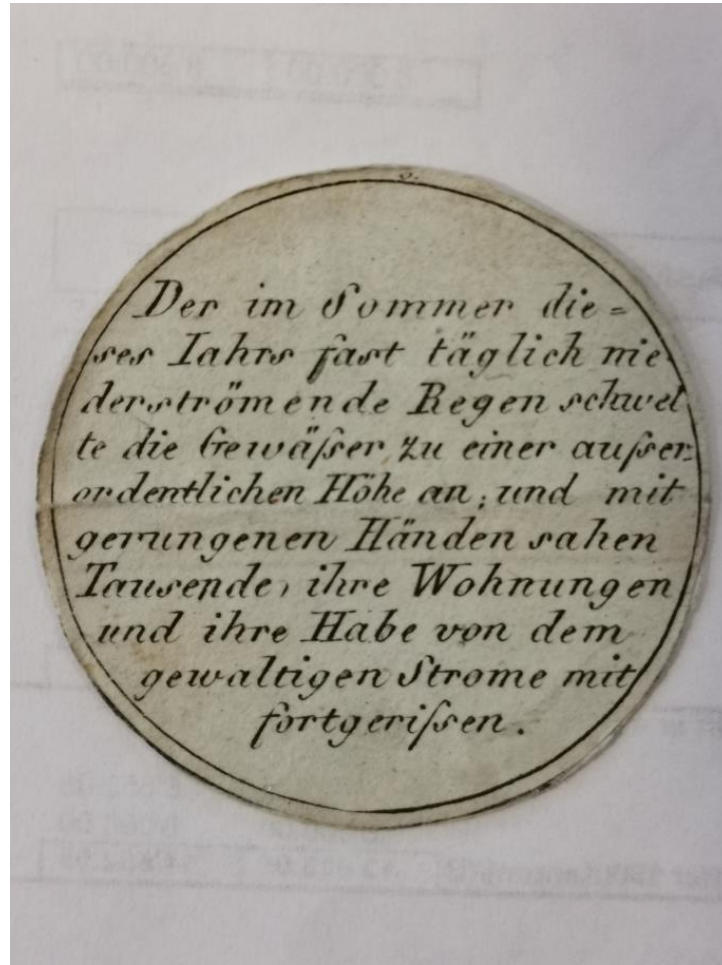 3.
Der im Sommer die=
ses Iahrs fast täglich nie
derströmende Regen schwel
te die Gewäſser zu einer auſser=
ordentlichen Höhe an; und mit
gerungenen Händen sahen
Tausende, ihre Wohnungen
und ihre Habe von dem
gewaltigen Strome mit
fortgeriſsen.